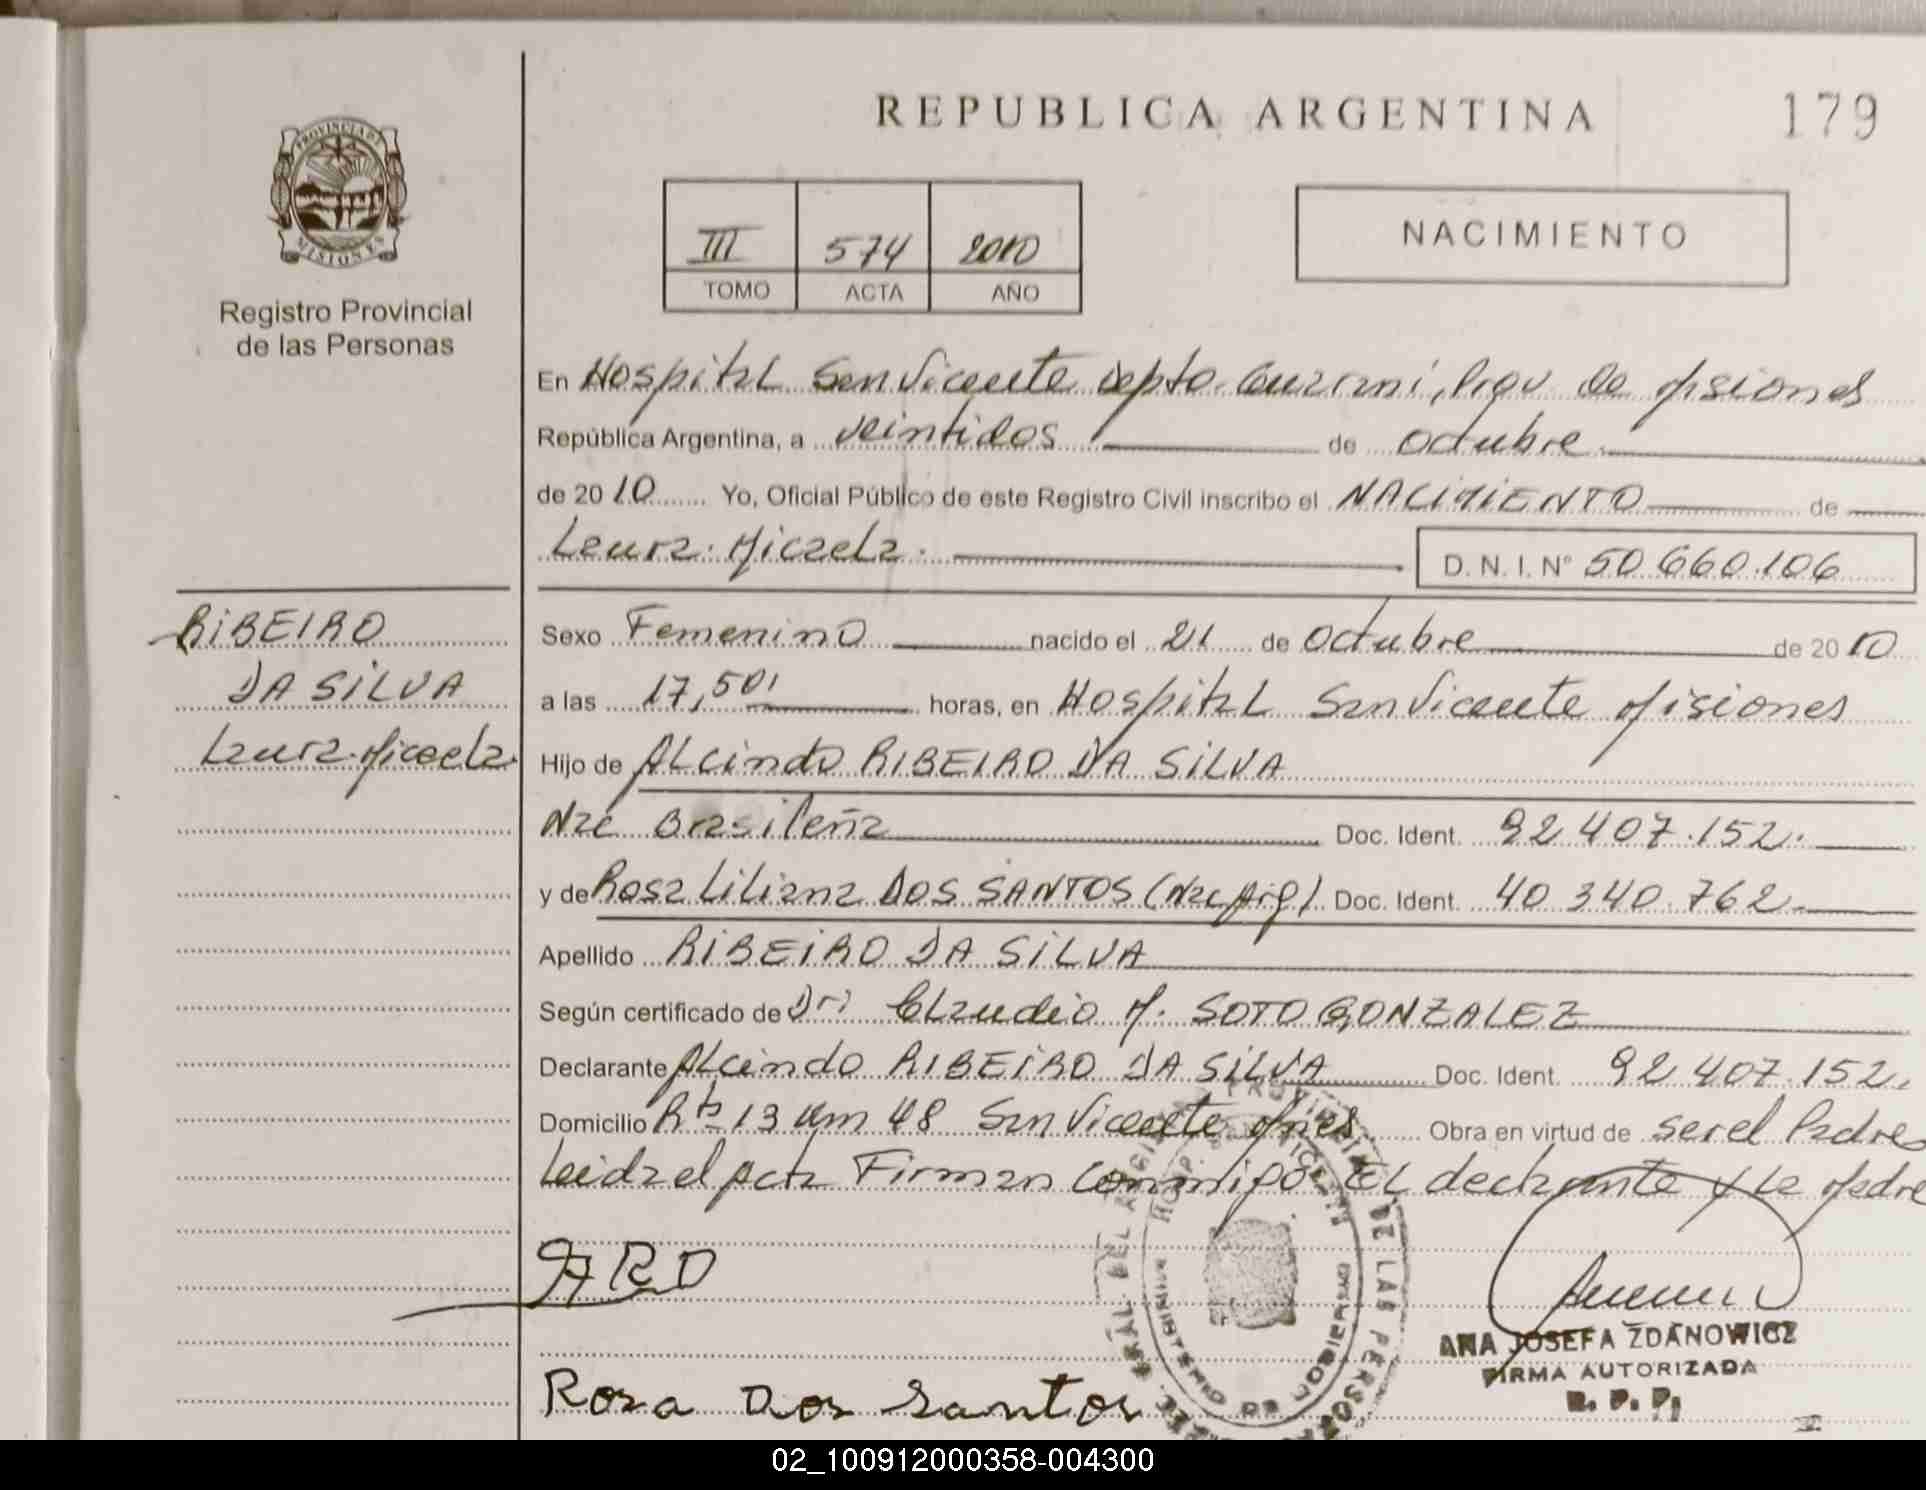 REPUBLICA ARGENTINA
179
PROVINCIA DE
MISIONES
Registro Provincial
de las Personas
III 574 2010
TOMO ACTA AÑO
NACIMIENTO
En Hospital San Vicente Depto. Guaraní, Prov de Misiones
República Argentina, a veintidos de octubre
de 2010 Yo, Oficial Público de este Registro Civil inscribo el NACIMIENTO de
Laura Micaela. D. N. I. N° 50 660.106
RIBEIRO
DA SILVA
Laura Micaela
Sexo Femenino nacido el 21 de Octubre de 2010
a las 17,50' horas, en Hospital San Vicente Misiones
Hijo de Alcindo RIBEIRO DA SILVA
Nac Brasileña Doc. Ident. 92 407.152.
y de Rosa Liliana DOS SANTOS (Nac Arg). Doc. Ident. 40 340.762
Apellido RIBEIRO DA SILVA
Según certificado de Dr. Claudio M. SOTO GONZALEZ
Declarante Alcindo RIBEIRO DA SILVA Doc. Ident. 92 407.152.
Domicilio Rta 13 Km 48 San Vicente Mnes Obra en virtud de ser el Padre
Leida el Acta Firman Conmigo EL declarante y La Madre
ARD
Rosa Dos Santos
DE LAS PERSONAS
MINISTERIO DE GOBIERNO
ANA JOSEFA ZDANOWICZ
FIRMA AUTORIZADA
R. P. P.
02_100912000358-004300